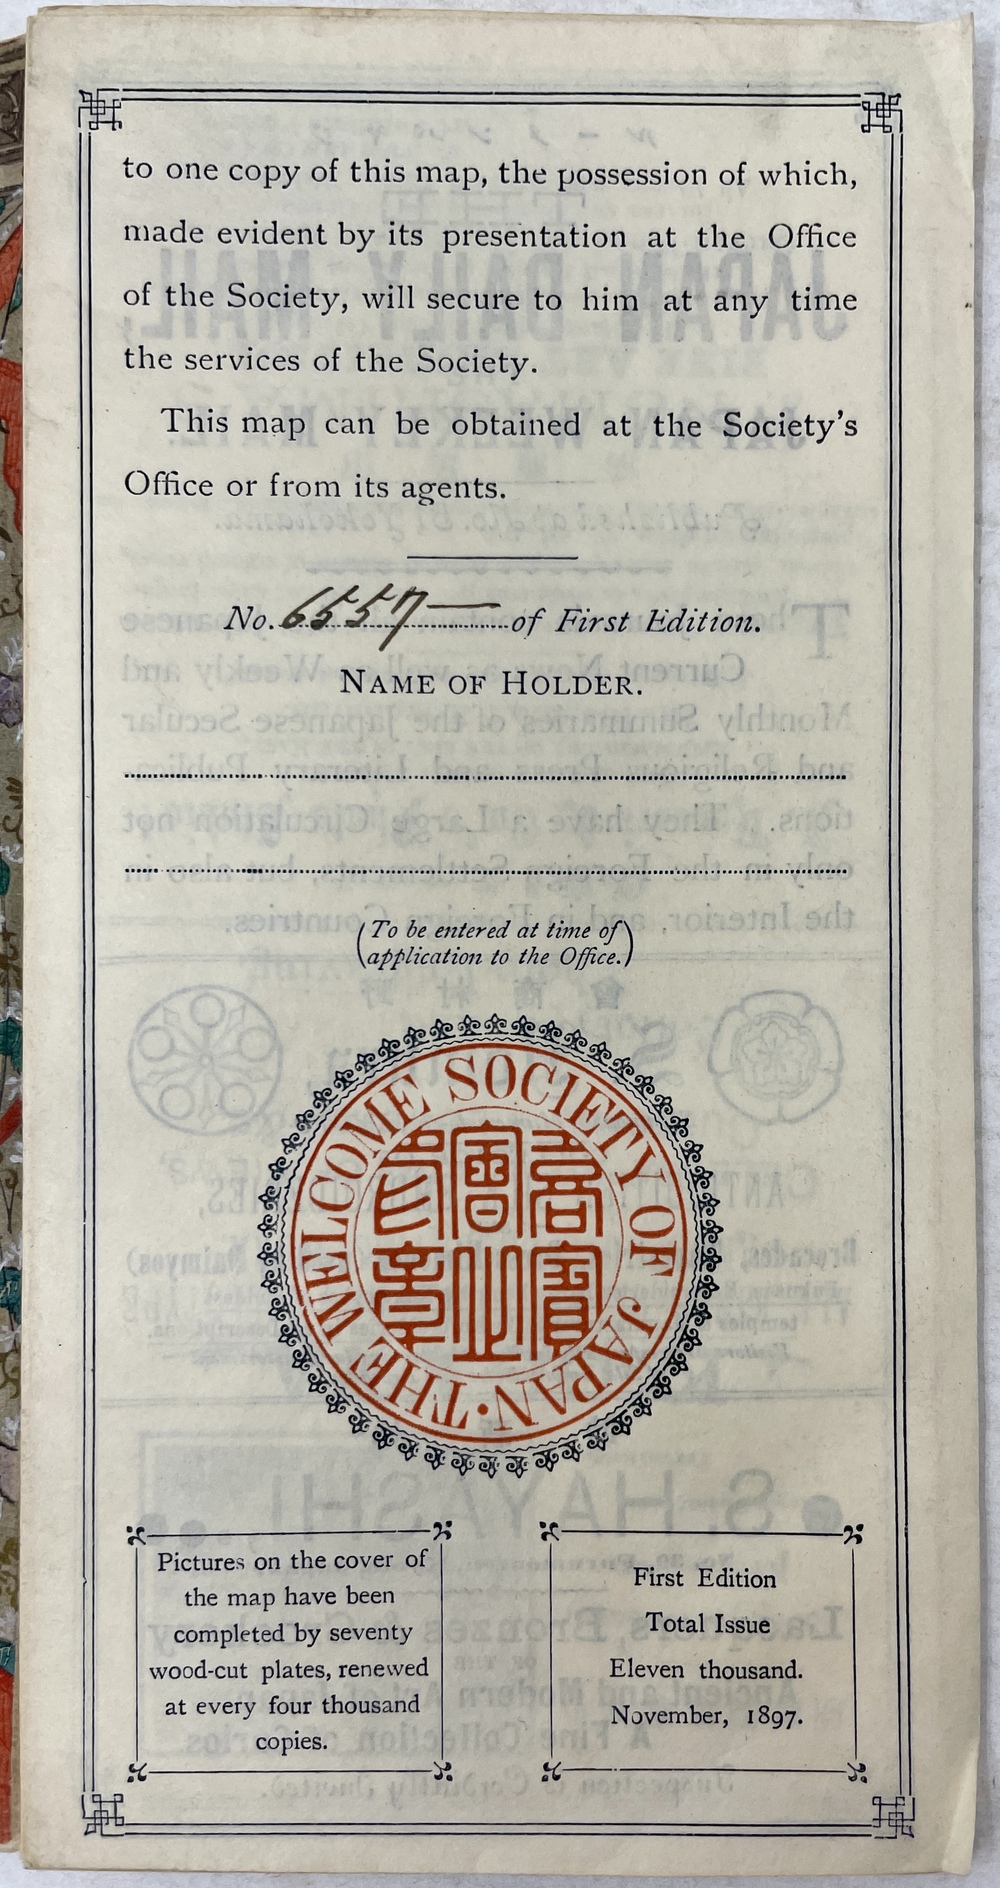 to one copy of this map, the possession of which,
made evident by its presentation at the Office
of the Society, will secure to him at any time
the services of the Society.
This map can be obtained at the Society's
Office or from its agents.
No. 6557 of First Edition.
NAME OF HOLDER.
(To be entered at time of
application to the Office.)
THE WELCOME SOCIETY OF JAPAN·
喜賓
會止
印章
Pictures on the cover of
the map have been
completed by seventy
wood-cut plates, renewed
at every four thousand
copies.
First Edition
Total Issue
Eleven thousand.
November, 1897.